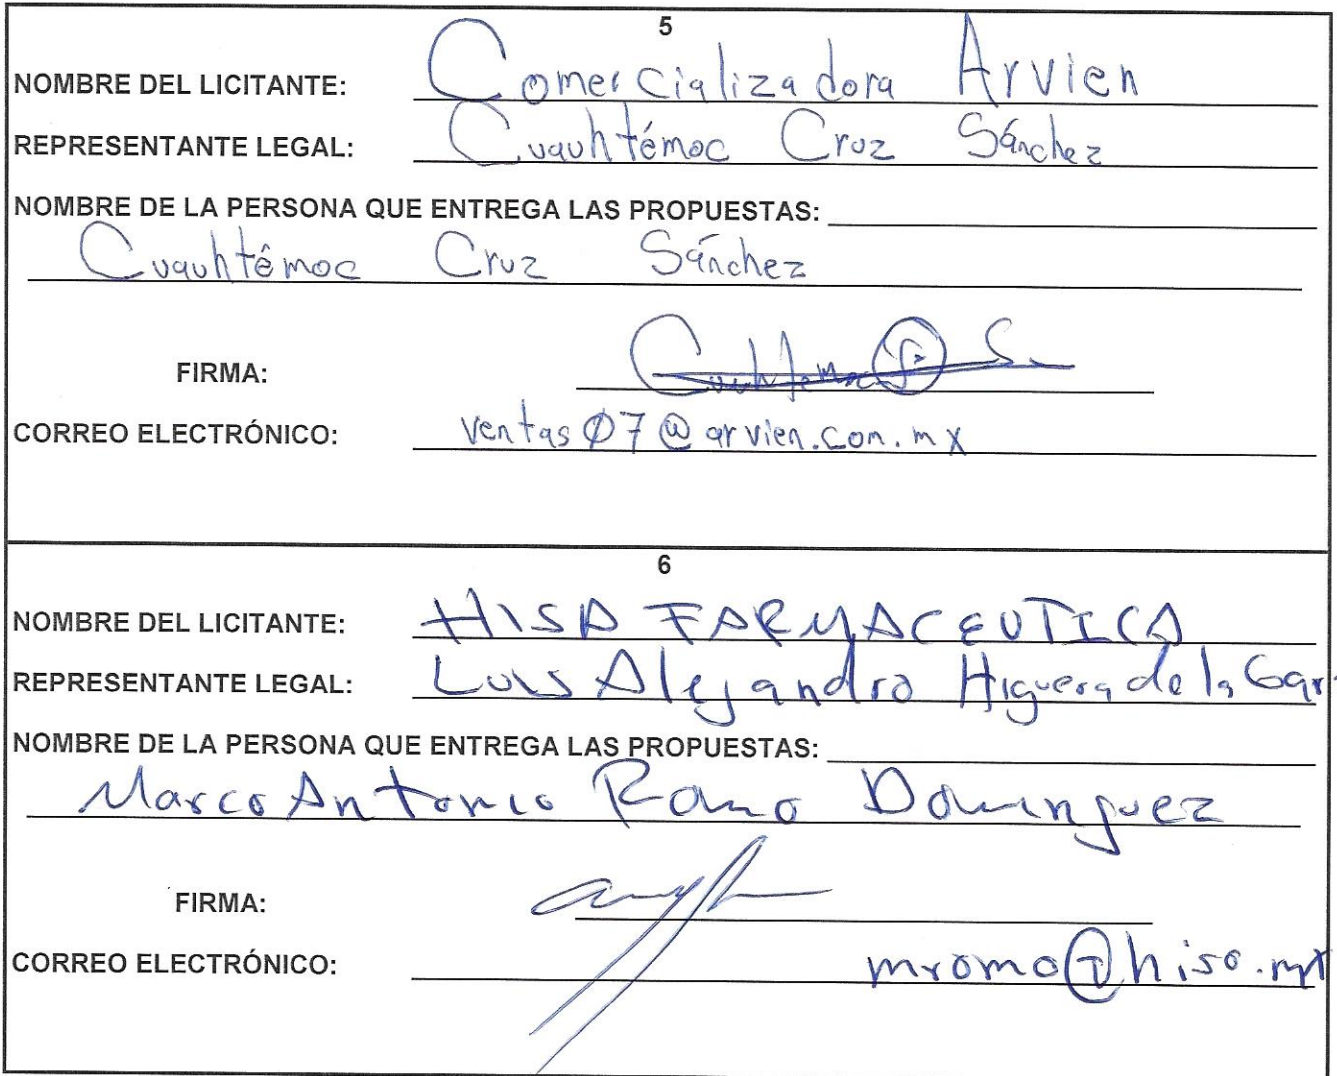 5
NOMBRE DEL LICITANTE: Comercializadora Arvien
REPRESENTANTE LEGAL: Cuauhtémoc Cruz Sánchez
NOMBRE DE LA PERSONA QUE ENTREGA LAS PROPUESTAS:
Cuauhtémoc Cruz Sánchez
FIRMA:
CORREO ELECTRÓNICO: ventas07@arvien.com.mx
6
NOMBRE DEL LICITANTE: HISA FARMACEUTICA
REPRESENTANTE LEGAL: Luis Alejandro Higuera de la
NOMBRE DE LA PERSONA QUE ENTREGA LAS PROPUESTAS:
Marco Antonio Romo Dominguez
FIRMA:
CORREO ELECTRÓNICO: